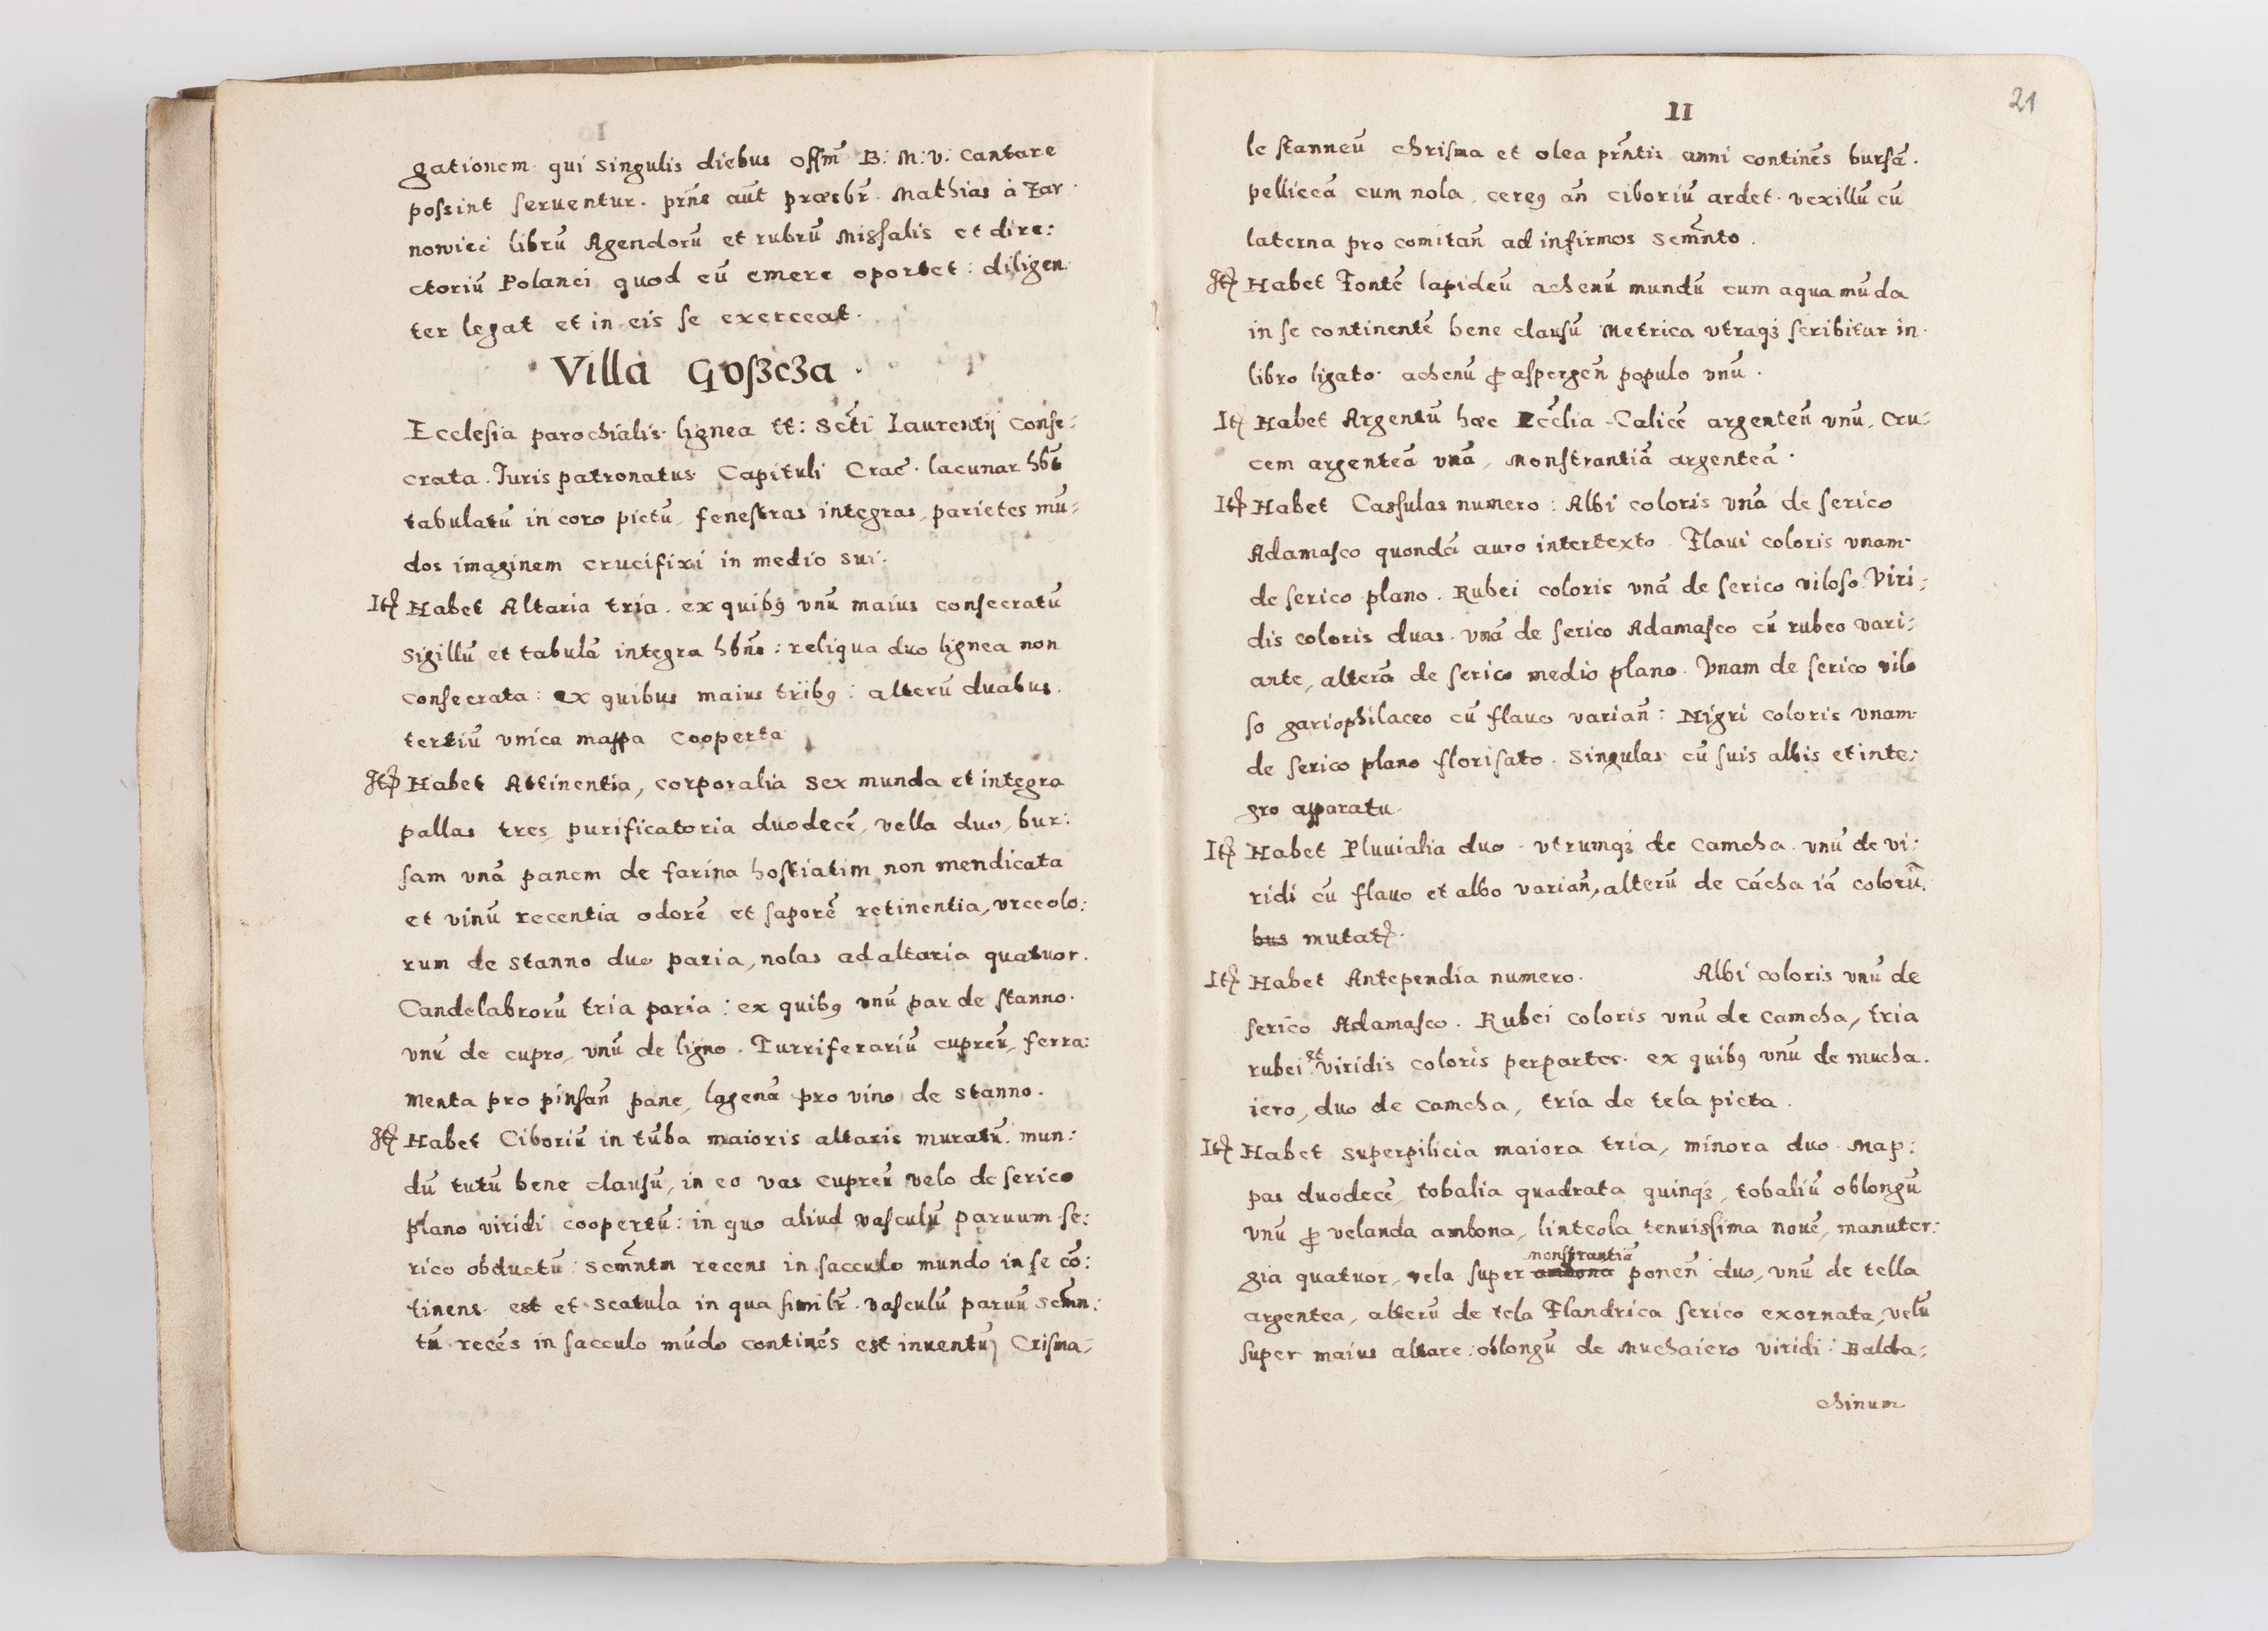 gationem qui singulis diebus offm̃ B: M: V: cantare
possint seruentur. prñs aũt præsbr̃. Mathias à Zar
nowiec librũ Agendorũ et rubrũ Missalis et dire:
ctoriũ Polanci quod eũ emere oportet: diligen
ter legat et in eis se exerceat.
Villa Goszcza.
Ecclesia parochialis lignea tt: Scti Laurentij Conse:
crata. Juris patronatus Capituli Crac. lacunar hb̃s
tabulatũ in coro pictũ, fenestras integras, parietes mũ:
dos imaginem crucifixi in medio sui.
Itẽ Habet Altaria tria. ex quibꝫ vnũ maius consecratũ
sigillũ et tabulã integra hbñs: reliqua duo lignea non
consecrata: ex quibus maius tribꝫ: alterũ duabus.
tertiũ vnica mappa cooperta
Itẽ Habet Attinentia, corporalia sex munda et integra
pallas tres, purificatoria duodecẽ, vella duo, bur:
sam vnã panem de farina hostiatim non mendicata
et vinũ recentia odorẽ et saporẽ retinentia, vrceolo:
rum de stanno duo paria, nolas ad altaria quatuor.
Candelabrorũ tria paria: ex quibꝫ vnũ par de stanno.
vnũ de cupro, vnũ de ligno. Turriferariũ cupreũ, ferra:
menta pro pinsañ pane, lagenã pro vino de stanno.
Itẽ Habet Ciboriũ in tũba maioris altaris muratũ. mun:
dũ tutũ bene clausũ, in eo vas cupreũ velo de serico
plano viridi coopertũ: in quo aliud vasculũ paruum se:
rico obductũ: scm̃ntm recens in sacculo mundo in se cõ:
tinens. est et scatula in qua similr̃. vasculũ paruũ scm̃n:
tũ recẽs in sacculo mũdo continẽs est inuentũ, Crisma:
11
21
le stanneũ chrisma et olea prñtis anni continẽs bursã.
pelliceã cum nola. cereꝫ añ ciboriũ ardet. vexillũ cũ
laterna pro comitañ ad infirmos scm̃nto.
Itẽ Habet Fontẽ lapideũ achenũ mundũ cum aqua mũda
in se continentẽ bene clausũ Metrica vtraqꝫ scribitur in
libro ligato. achenũ ꝓ aspergeñ populo vnũ.
Itẽ Habet Argentũ hæc Ecc̃lia Calicẽ argenteũ vnũ, Cru:
cem argenteã vnã, Monstrantiã argenteã.
Itẽ Habet Cassulas numero: Albi coloris vnã de serico
Adamasco quondã auro intertexto. Flaui coloris vnam
de serico plano. Rubei coloris vnã de serico viloso. Viri:
dis coloris duas. vnã de serico Adamasco cũ rubeo vari:
ante, alterã de serico medio plano. Vnam de serico vilo
so gariophilaceo cũ flauo variañ: Nigri coloris vnam
de serico plano florisato. Singulas cũ suis albis et inte:
gro apparatu.
Itẽ Habet Pluuialia duo. vtrumqꝫ de camcha. vnũ de vi:
ridi cũ flauo et albo variañ, alterũ de cãcha iã colorũ.
bus mutatꝭ.
Itẽ Habet Antependia numero. Albi coloris vnũ de
serico Adamasco. Rubei coloris vnũ de camcha, tria
rubei et viridis coloris perpartes. ex quibꝫ vnũ de mucha.
iero, duo de camcha, tria de tela picta.
Itẽ Habet superpilicia maiora tria, minora duo. Map:
pas duodecẽ, tobalia quadrata quinqꝫ, tobaliũ oblongũ
vnũ ꝓ velanda ambona, linteola tenuissima nouẽ, manuter:
gia quatuor, vela super ambona monstrantiã poneñ duo, vnũ de tella
argentea, alterũ de tela Flandrica serico exornata, velũ
super maius altare: oblongũ de Muchaiero viridi: Balda:
chinum